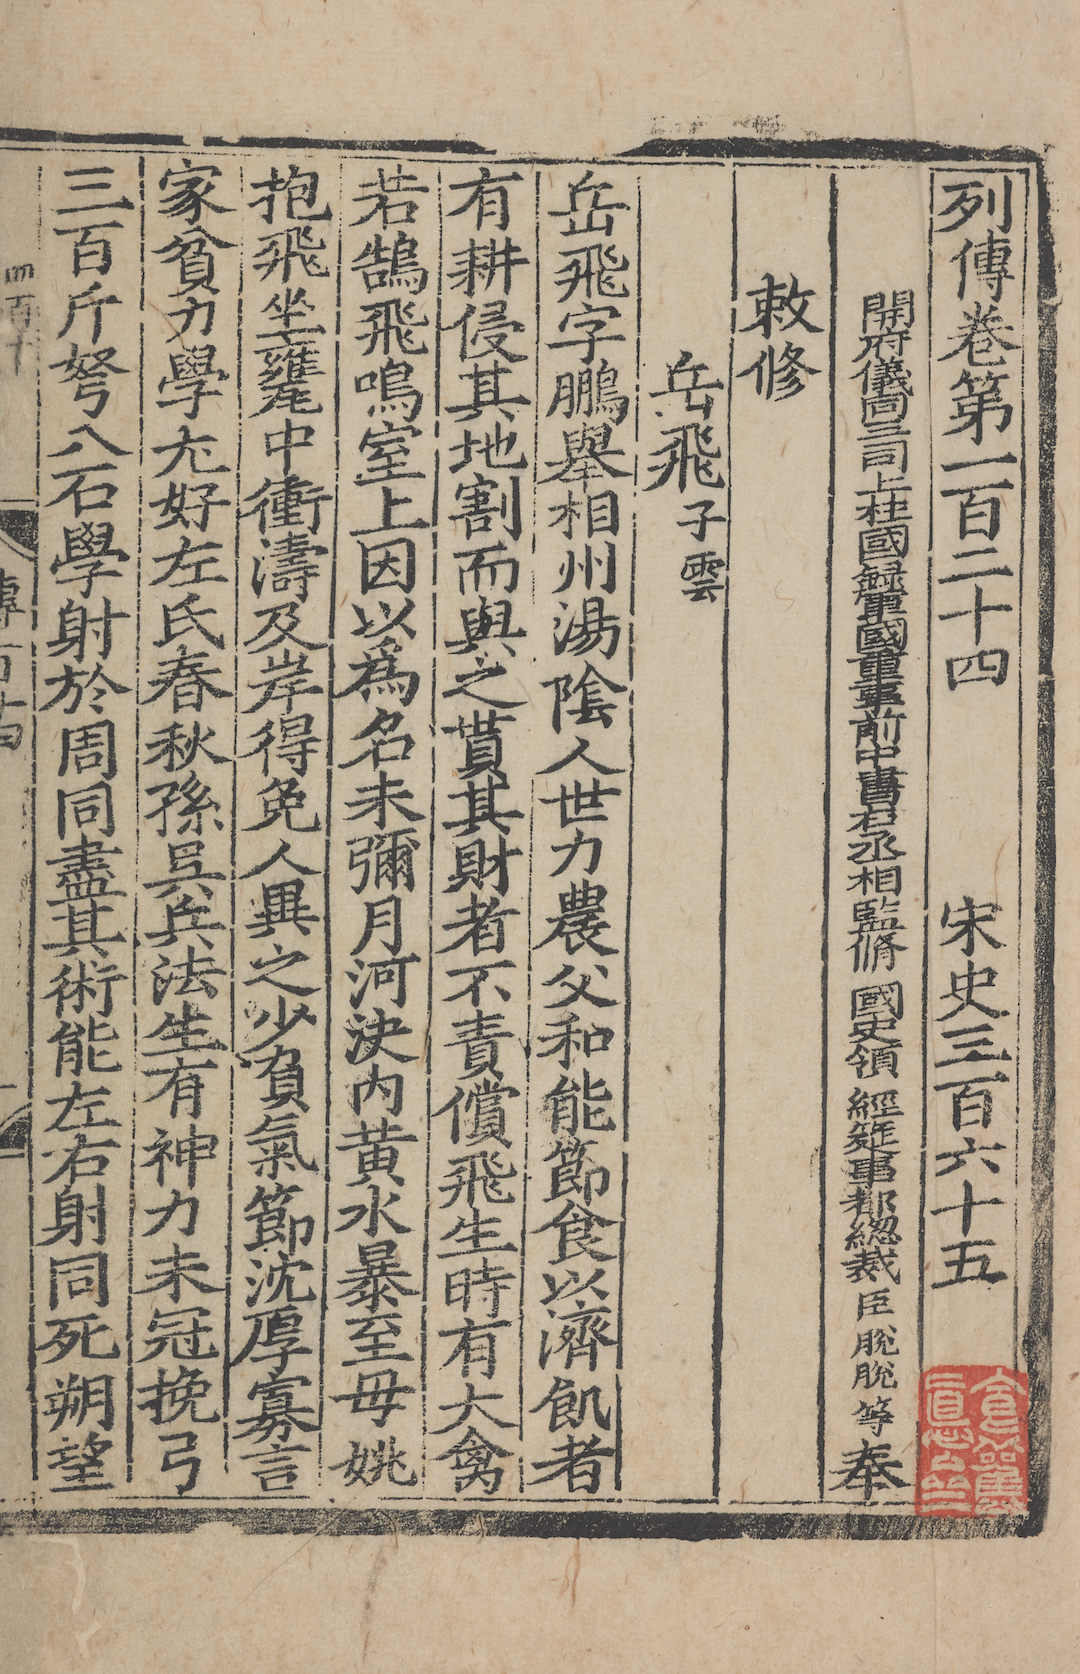 列傳卷第一百二十四　宋史三百六十五
開府儀同三司上柱國録軍國重事前中書右丞相監脩　國史領　經筵事都緫裁臣脫脫等奉
敕修
岳飛子雲
岳飛字鵬舉相州湯陰人世力農父和能節食以濟飢者
有耕侵其地割而與之貰其財者不責償飛生時有大禽
若鵠飛鳴室上因以爲名未彌月河決内黄水暴至母姚
抱飛坐甕中衝濤及岸得免人異之少負氣節沈厚寡言
家貧力學尤好左氏春秋孫吳兵法生有神力未冠挽弓
三百斤弩八石學射於周同盡其術能左右射同死朔望
四百十